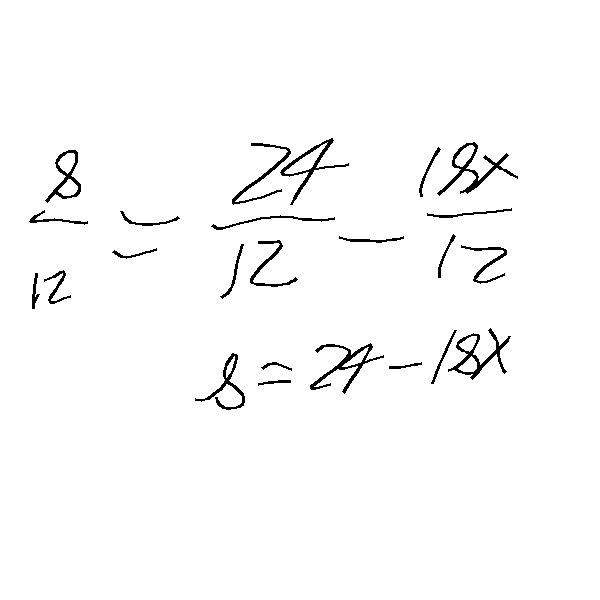 8/12 = 24/12 - 18x/12
8 = 24 - 18x